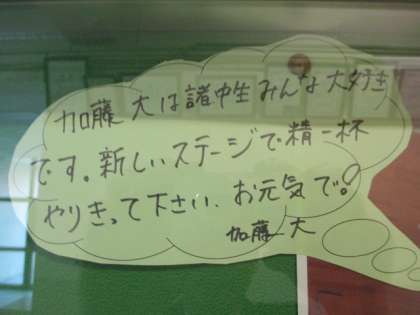 加藤 大は諸中生みんな大好き
です。新しいステージで精一杯
やりきって下さい、お元気で!
加藤 大